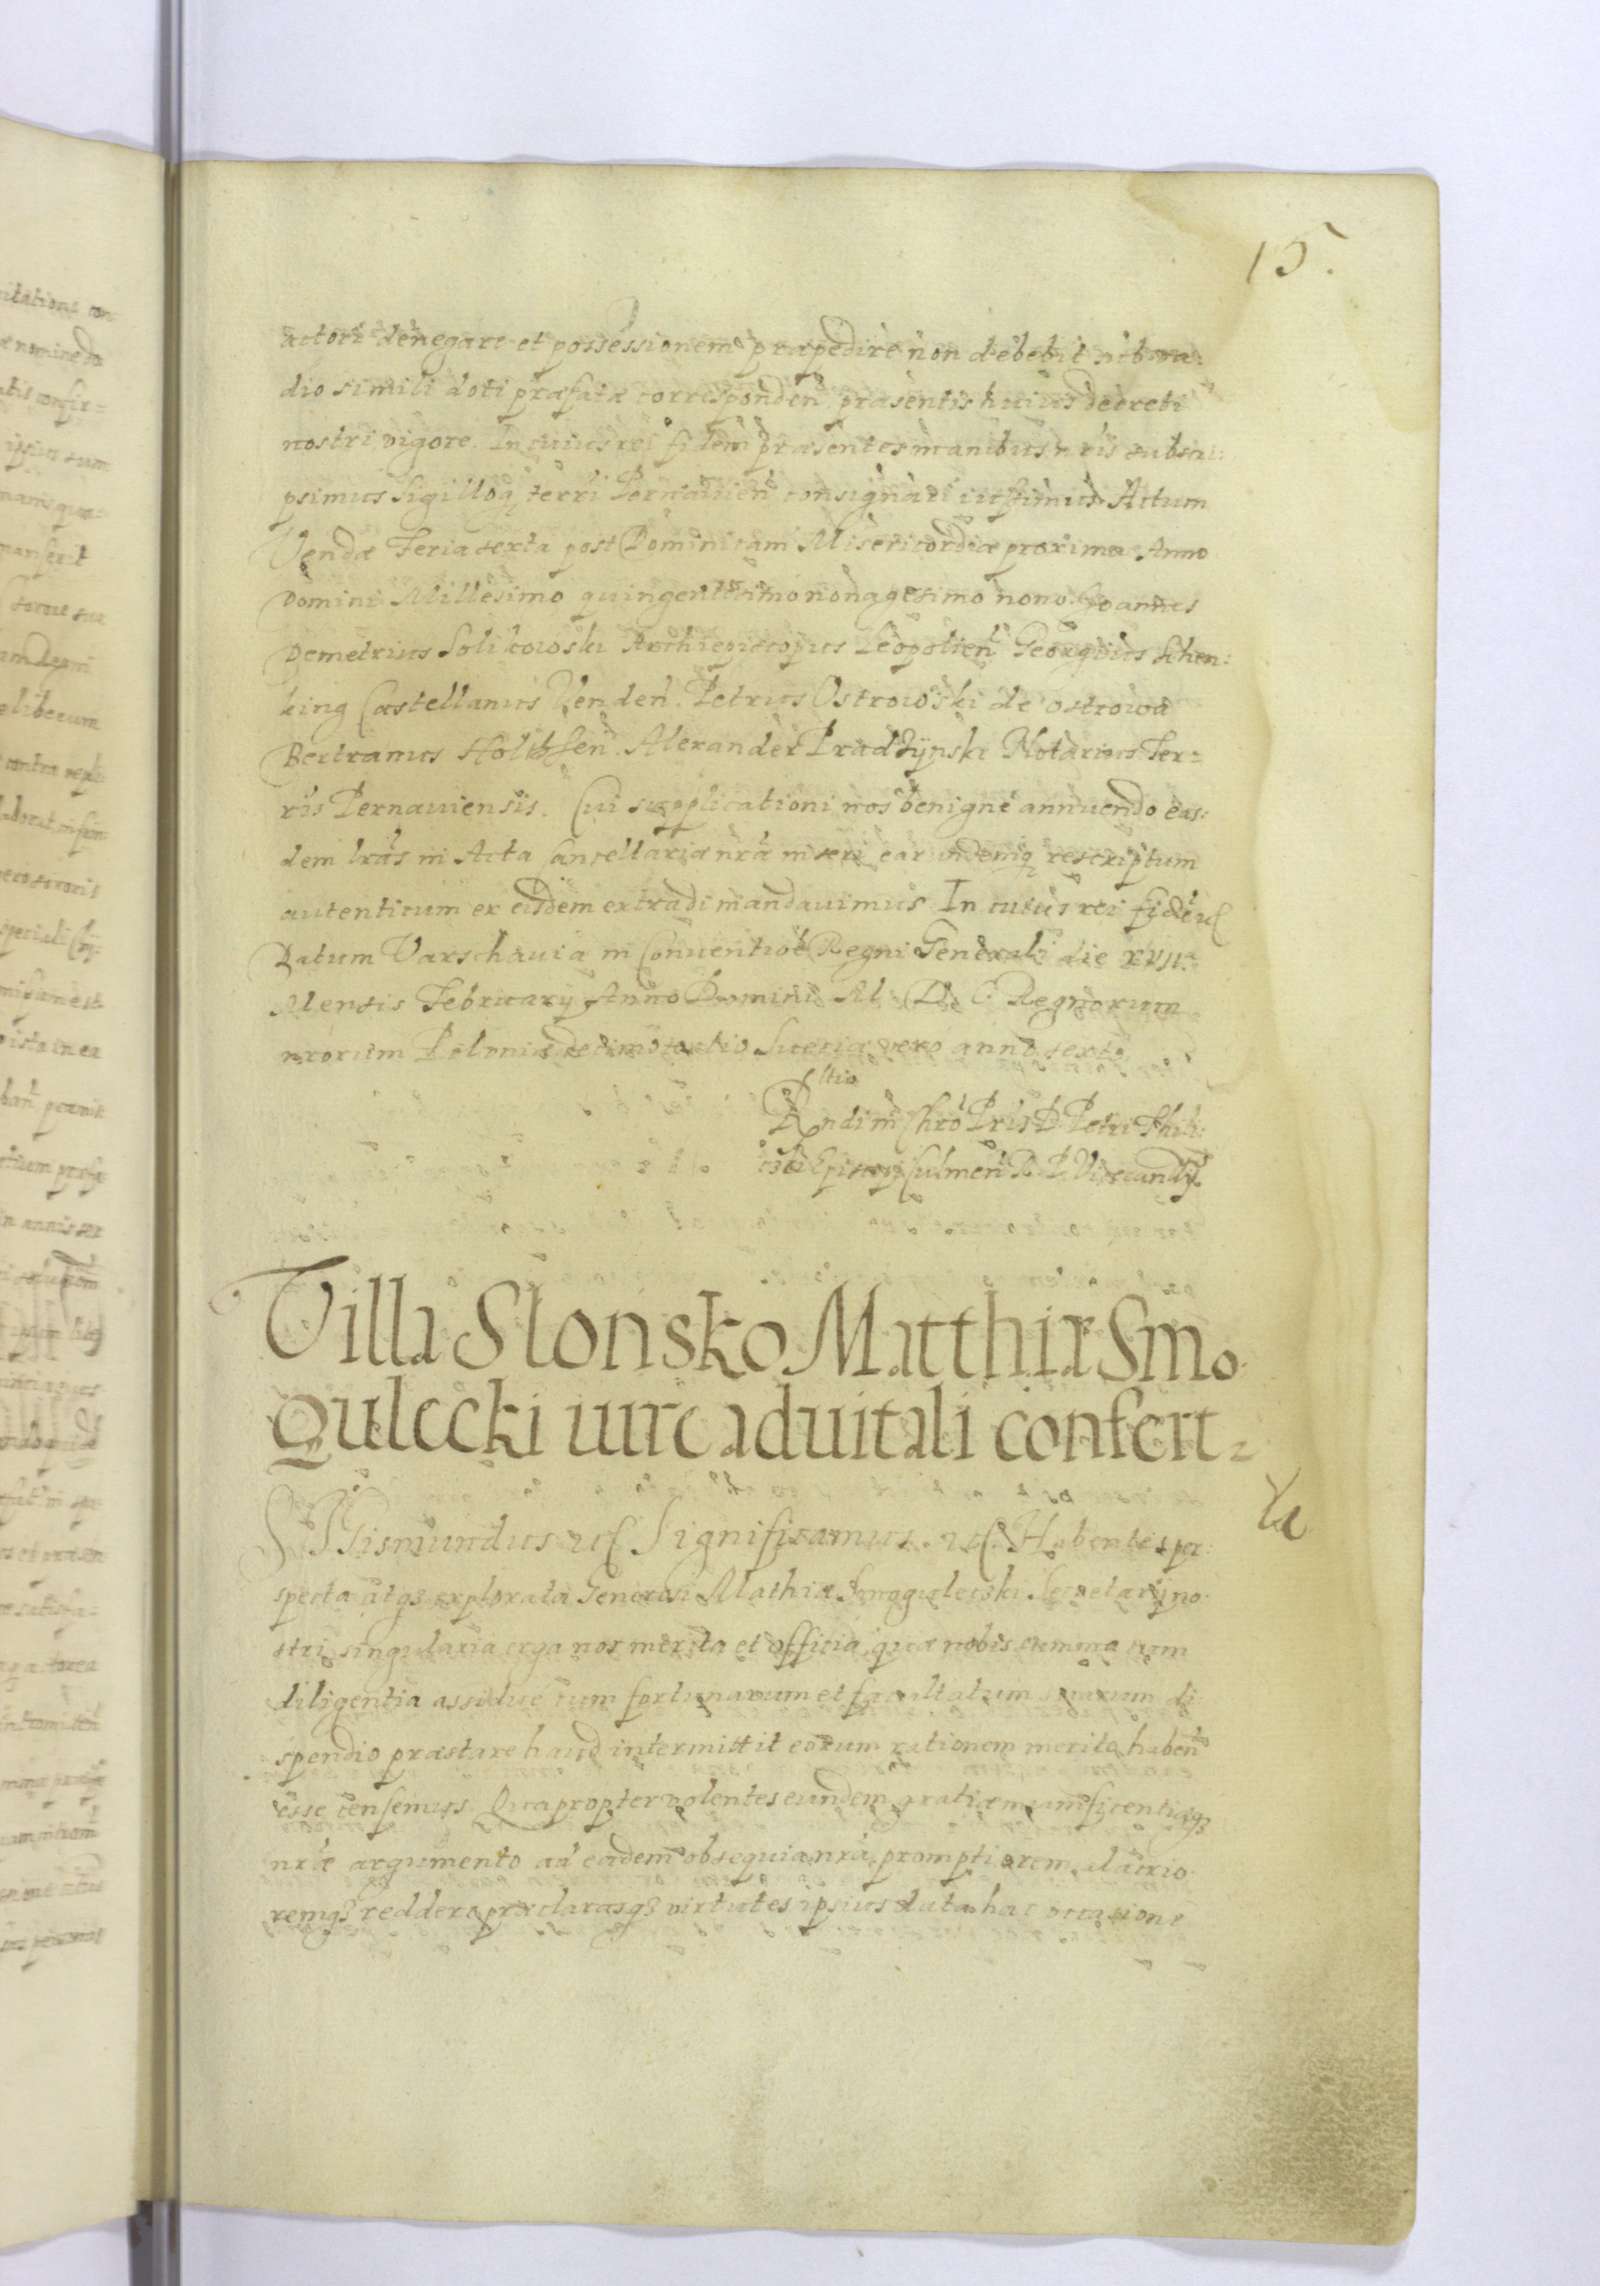 15.
actori denegare et possessionem præpedire non debebit
dio simili doti præfatæ corresponden præsentis huius decreti
nostri vigore. In cuius rei fidem præsentes manibus nris subscri:
psimus Sigilloq terræ Pernavien consignari iussimus. Actum
Vendæ Feria sexta post Dominicam Misericordiæ proxima Anno
Domini Millesimo quingentesimo nonagesimo nono. Joannes
Demetrius Solikowski Archiepiscopus Leopolien Georgius Schen:
king Castellanus Venden. Petrus Ostrowski de ostrowa
Bertramus Holtzsen. Alexander Prądzÿnski Notarius Ter:
ris Pernauiensis. Cui supplicationi nos benigne annuendo eas:
dem lras in Acta Cancellariæ nræ inseri earundemq rescriptum
autenticum ex eisdem extradi mandauimus. In cuius rei fidem
Datum Varschauiæ in Conuentione Regni Generali die XVII.
Mensis Februarÿ Anno Domini M. D. C. Regnorum
nrorum Poloniæ decimotertio Sueciæ vero anno sexto
Rndi in Chro Pris D. Petri Thili:
cki Episcopi Culmen R. P. Vicecancell
Villa Slonsko Matthiæ Smo
gulecki iure aduitali confert
Sigismundus Significamus. Habentes per:
specta atq explorata Generosi Mathiæ Smogulecski Secretarÿ no:
stri singularia erga nos merita et officia, quæ nobis summa cum
diligentia assidue cum fortunarum et facultatum suarum di
spendio præstare haud intermittit eorum rationem merito haben
esse censemus. Quapropter volentes eundem gratiæ munificentiæq
nræ argumento ad eadem obsequia nra promptiorem alacrio
remq reddere præclarasq virtutes ipsius data hac occasione